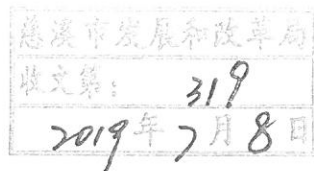 慈溪市发展和改革局
收文第：319
2019年7月8日